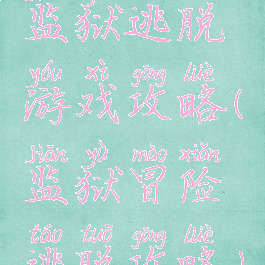 监狱逃脱
yóu xì gōng lüè
游戏攻略(
jiān yù mào xiǎn
监狱冒险
táo tuō gōng lüè
逃脱攻略)